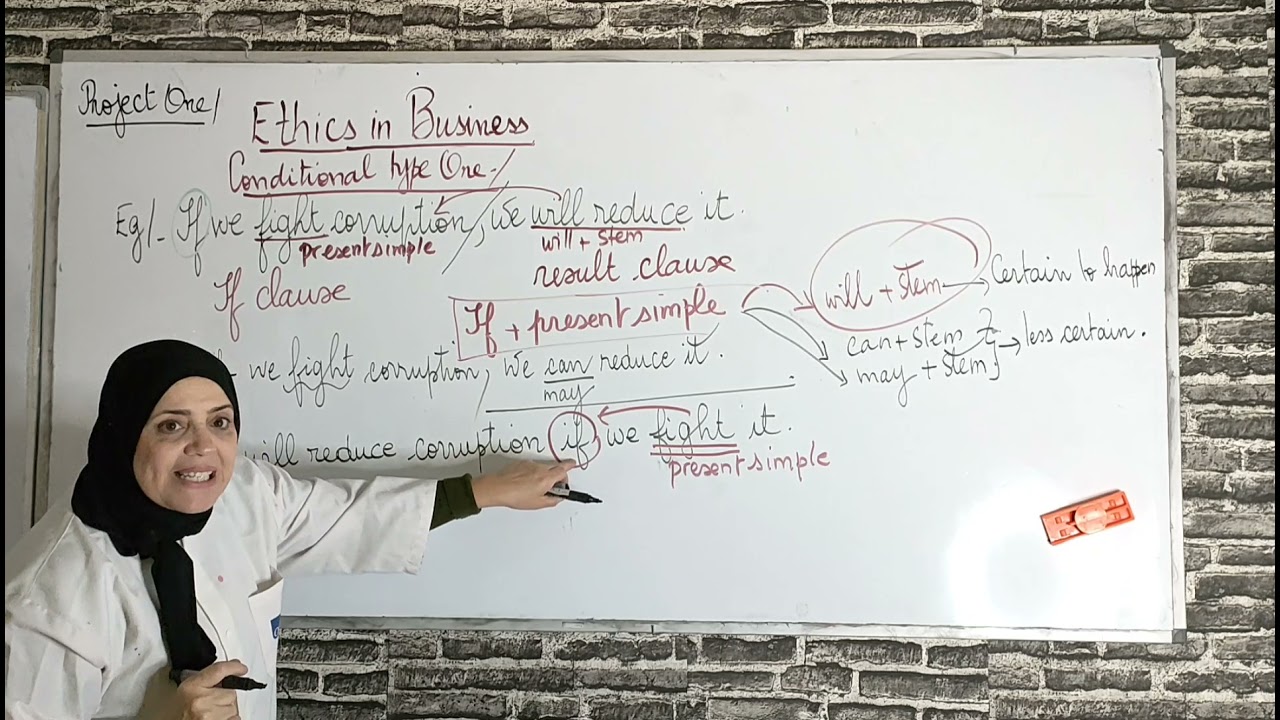 Project One/
Ethics in Business
Conditional type One-/
Eg/- If we fight corruption, we will reduce it.
present simple will + stem
If clause result clause
If + present simple
will + stem → Certain to happen
can + stem
may + stem } → less certain.
we fight corruption, we can reduce it.
may
will reduce corruption if we fight it.
present simple